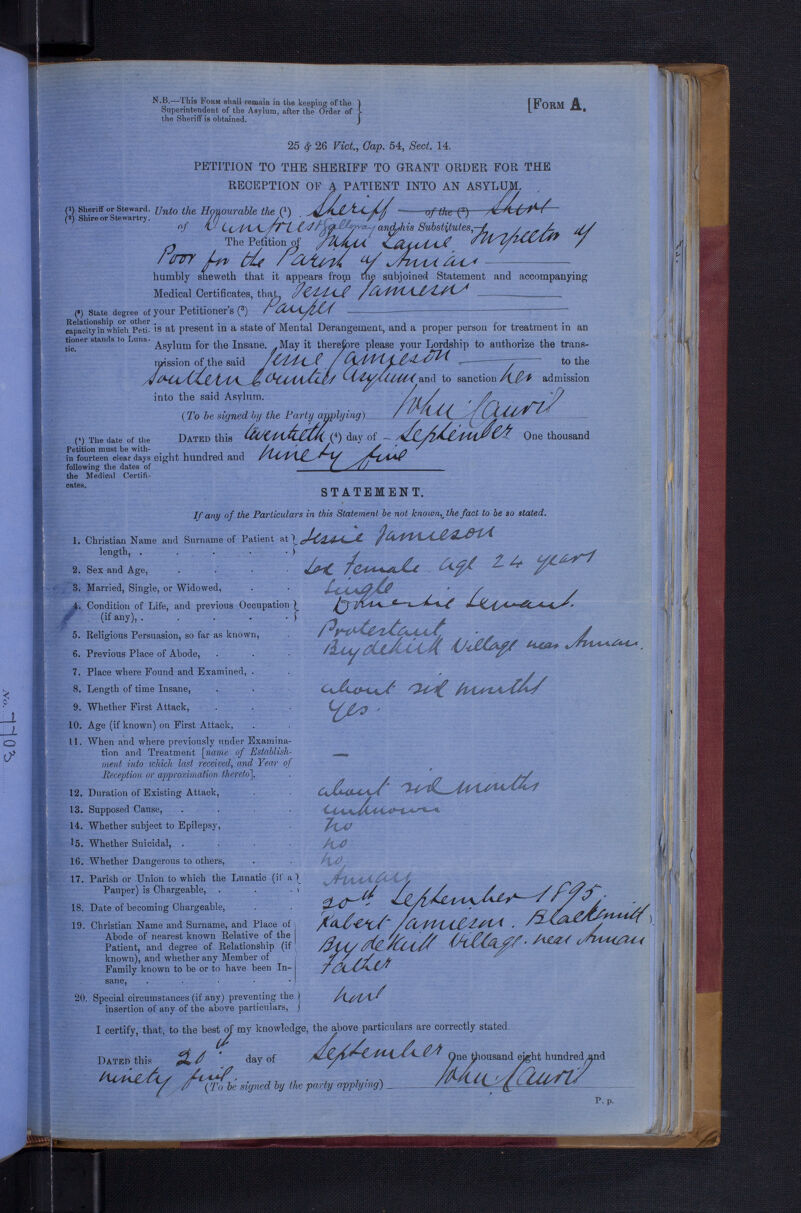 N.B.—This FORM shall remain in the keeping of the
Superintendent of the Asylum, after the Order of
the Sheriff is obtained.
[FORM A.
25 & 26 Vict., Cap. 54, Sect. 14.
PETITION TO THE SHERIFF TO GRANT ORDER FOR THE
RECEPTION OF A PATIENT INTO AN ASYLUM.
(1) Sheriff or Steward.
(2) Shire or Stewartry.
Unto the Honourable the (1) Sheriff of the (2) Shire
of Dumfries & Galloway and his Substitutes,
The Petition of John Laurie Inspector of
Poor for the Parish of Annan
humbly sheweth that it appears from the subjoined Statement and accompanying
Medical Certificates, that Jessie Jamieson
(3) State degree of
Relationship or other
capacity in which Peti-
tioner stands to Luna-
tic.
your Petitioner's (3) Pauper
is at present in a state of Mental Derangement, and a proper person for treatment in an
Asylum for the Insane. May it therefore please your Lordship to authorize the trans-
mission of the said Jessie Jamieson to the
Southern Counties Asylum and to sanction her admission
into the said Asylum.
(To be signed by the Party applying) John Laurie
(4) The date of the
Petition must be with-
in fourteen clear days
following the dates of
the Medical Certifi-
cates.
DATED this twentieth (4) day of September One thousand
eight hundred and ninety five
STATEMENT.
If any of the Particulars in this Statement be not known, the fact to be so stated.
1. Christian Name and Surname of Patient at
length, . Jessie Jamieson
2. Sex and Age, Sex Female age 24 years
3. Married, Single, or Widowed, Single
4. Condition of Life, and previous Occupation
(if any), . Domestic Servant.
5. Religious Persuasion, so far as known, Protestant
6. Previous Place of Abode, Brydekirk Village near Annan.
7. Place where Found and Examined, .
8. Length of time Insane, about six months
9. Whether First Attack, Yes.
10. Age (if known) on First Attack,
11. When and where previously under Examina-
tion and Treatment [name of Establish-
ment into which last received, and Year of
Reception or approximation thereto], —
12. Duration of Existing Attack, about six months
13. Supposed Cause, unknown
14. Whether subject to Epilepsy, no
15. Whether Suicidal, . no
16. Whether Dangerous to others, no
17. Parish or Union to which the Lunatic (if a
Pauper) is Chargeable, . Annan
18. Date of becoming Chargeable, 20th September 1895.
19. Christian Name and Surname, and Place of
Abode of nearest known Relative of the
Patient, and degree of Relationship (if
known), and whether any Member of
Family known to be or to have been In-
sane,
Robert Jamieson. Blacksmith
Brydekirk Village. near Annan
Father
20. Special circumstances (if any) preventing the
insertion of any of the above particulars, none
I certify, that, to the best of my knowledge, the above particulars are correctly stated
DATED this 20th day of September One thousand eight hundred and
ninety five.
(To be signed by the party applying) John Laurie
P. p.
No. 7703